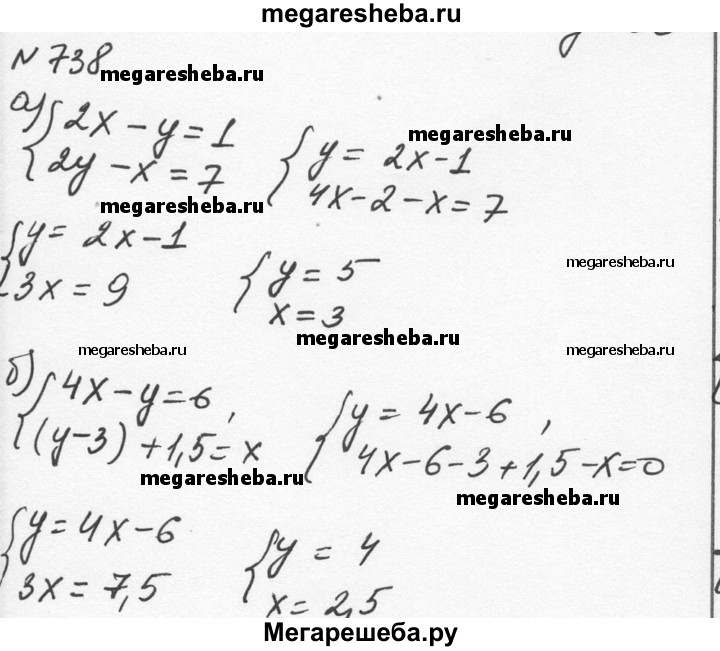 megaresheba.ru
N 738
megaresheba.ru
а) { 2x - y = 1
2y - x = 7
megaresheba.ru
{ y = 2x - 1
4x - 2 - x = 7
megaresheba.ru
{ y = 2x - 1
3x = 9
{ y = 5
x = 3
megaresheba.ru
megaresheba.ru
megaresheba.ru
megaresheba.ru
б) { 4x - y = 6,
(y - 3) + 1,5 = x
megaresheba.ru
{ y = 4x - 6,
4x - 6 - 3 + 1,5 - x = 0
megaresheba.ru
{ y = 4x - 6
3x = 7,5
{ y = 4
x = 2,5
Мегарешеба.ру